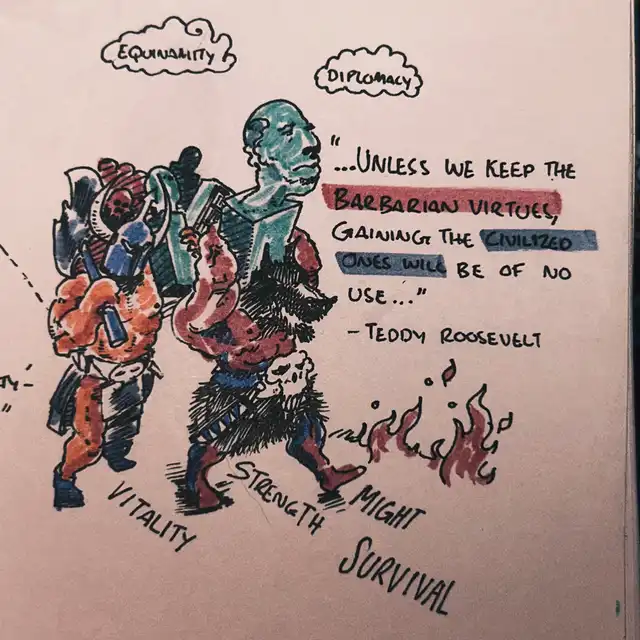 EQUINAMITY
DIPLOMACY
"...UNLESS WE KEEP THE
BARBARIAN VIRTUES,
GAINING THE CIVILIZED
ONES WILL BE OF NO
USE..."
- TEDDY ROOSEVELT
TY-
"
VITALITY
STRENGTH
MIGHT
SURVIVAL